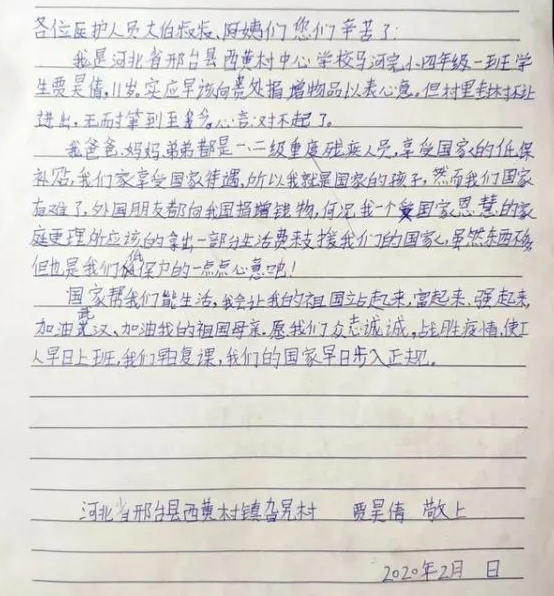 各位医护人员大伯叔叔、阿姨们您们辛苦了：
我是河北省邢台县西黄村中心学校马河完小四年级一班学
生贾昊倩，11岁，实应早该向贵处捐增物品以表心意。但村里封村不让
进出，至今，心言对不起了。
我爸爸、妈妈、弟弟都是一、二级重度残疾人员，享受国家的低保
补贴，我们家享受国家待遇，所以我就是国家的孩子，然而我们国家
有难了，外国朋友都向我国捐增钱物，何况我一个受国家恩慧的家
庭更理所应该的拿出一部分生活费来支援我们的国家，虽然东西不多
但也是我们低保户的一点点心意吧！
国家帮我们能生活，我会让我的祖国站起来，富起来、强起来，
加油武汉、加油我的祖国母亲。愿我们众志诚诚，战胜疫情，使工
人早日上班，我们早日复课，我们的国家早日步入正规。
河北省邢台县西黄村镇 村 贾昊倩 敬上
2020年2月 日